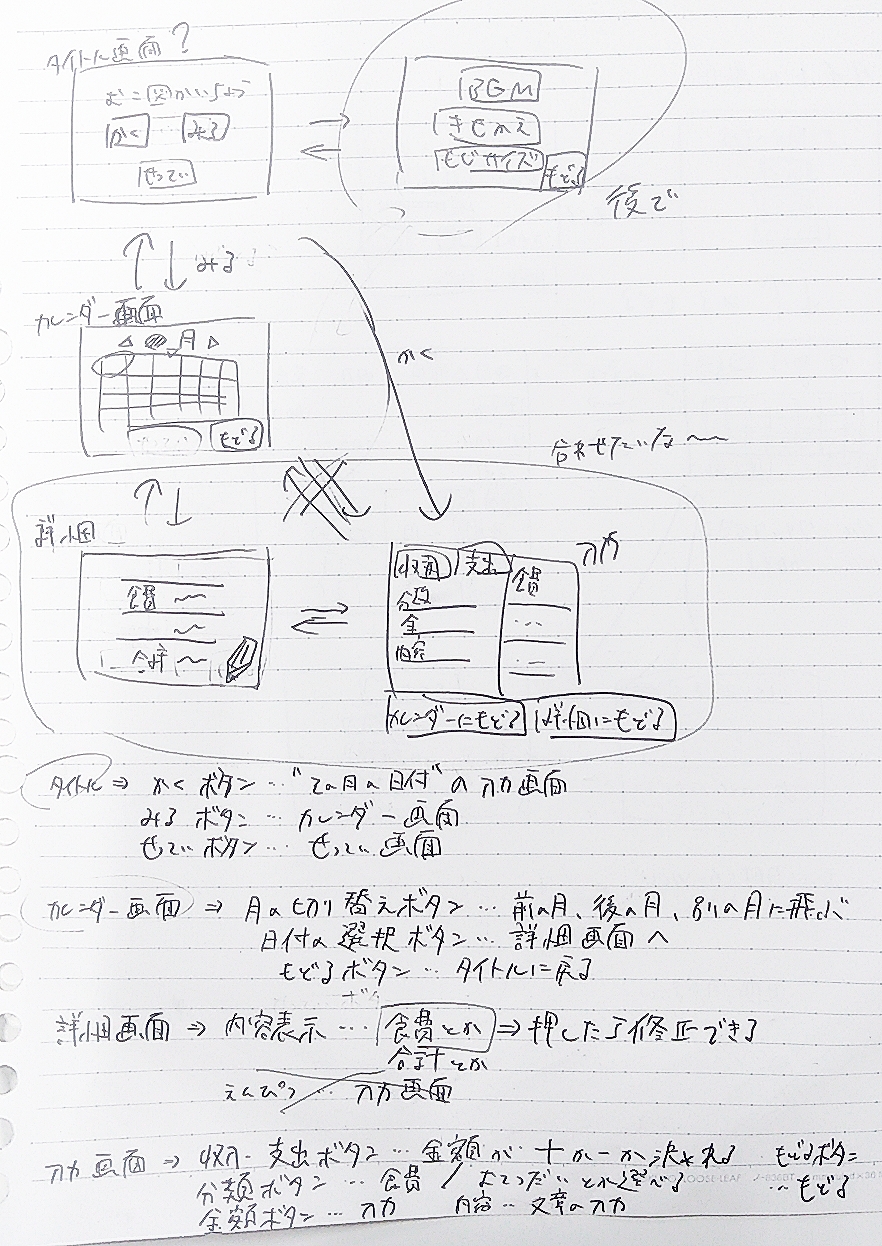 タイトル画面?
かく みる
せってい
BGM
きせかえ
もじサイズ
もどる
後で
みる
カレンダー画面
月
もどる
かく
合わせたいな〜
詳細
食費 〜
〜
合計 〜
入力
収入 支出
食費
分類
金
内容
カレンダーにもどる 詳細にもどる
タイトル ⇒ かくボタン…"その月の日付"の入力画面
みるボタン…カレンダー画面
せっていボタン…せってい画面
カレンダー画面 ⇒ 月の切り替えボタン…前の月、後の月、別の月に飛ぶ
日付の選択ボタン…詳細画面へ
もどるボタン…タイトルに戻る
詳細画面 ⇒ 内容表示…食費とか⇒押したら修正できる
合計とか
えんぴつ…入力画面
入力画面 ⇒ 収入・支出ボタン…金額が+か-か決めれる もどるボタン
分類ボタン…食費/おこづかいとか選べる …もどる
金額ボタン…入力 内容…文章の入力